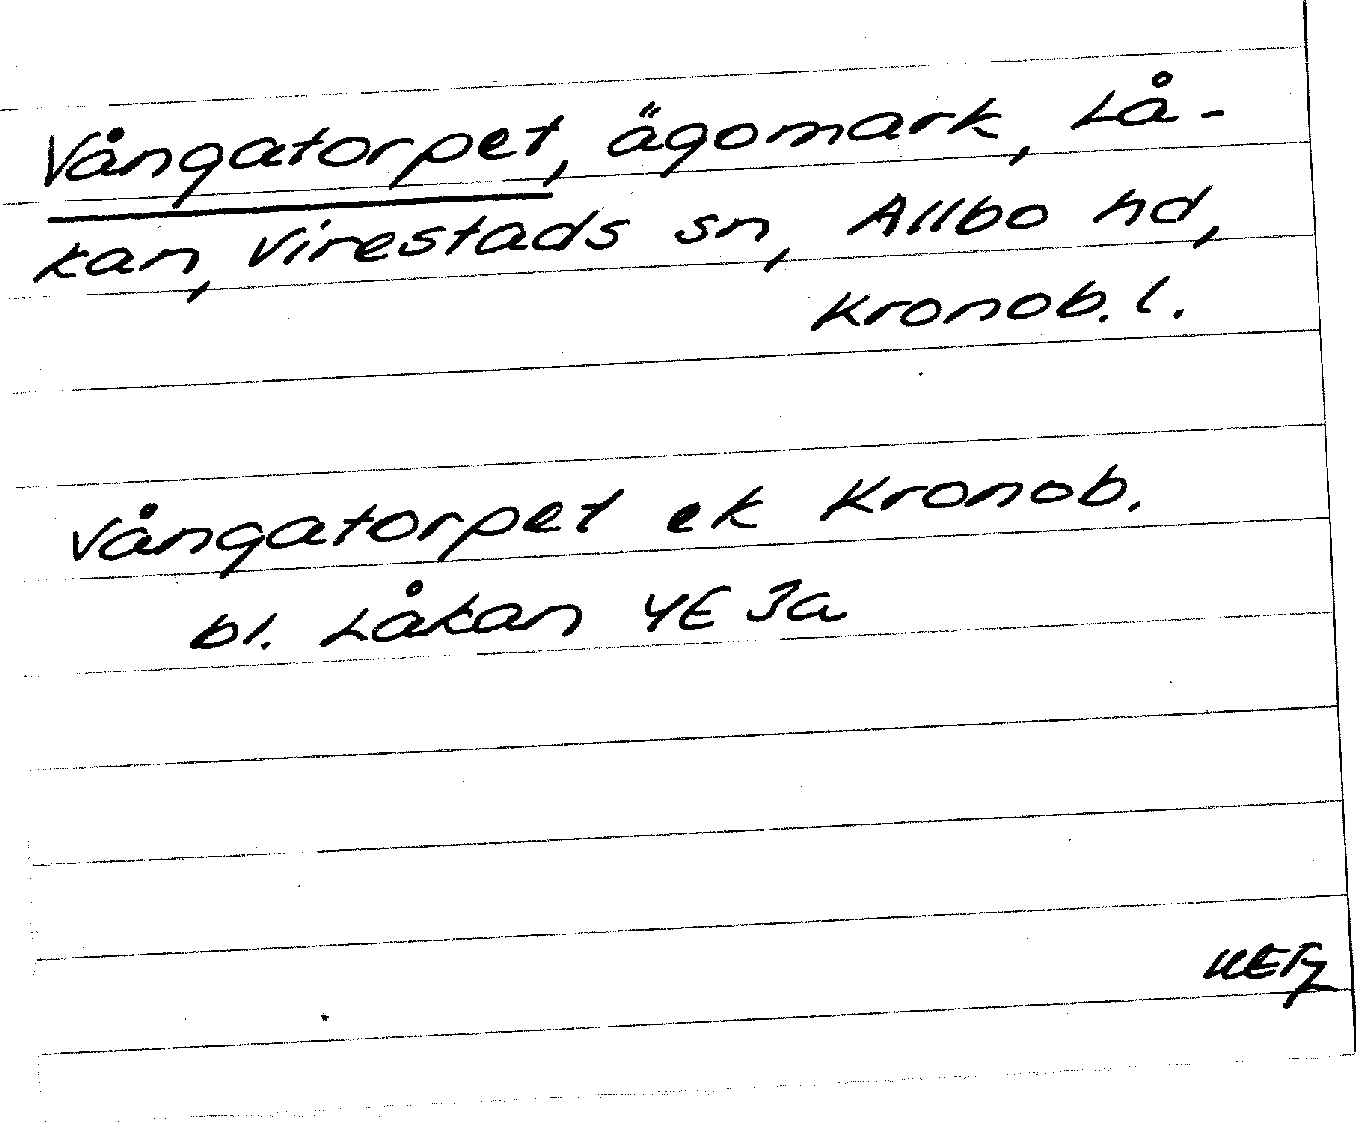 Vångatorpet, ägomark, Lå-
kan, Virestads sn, Allbo hd,
Kronob. l.
Vångatorpet ek Kronob.
bl. Låkan 4E 3a